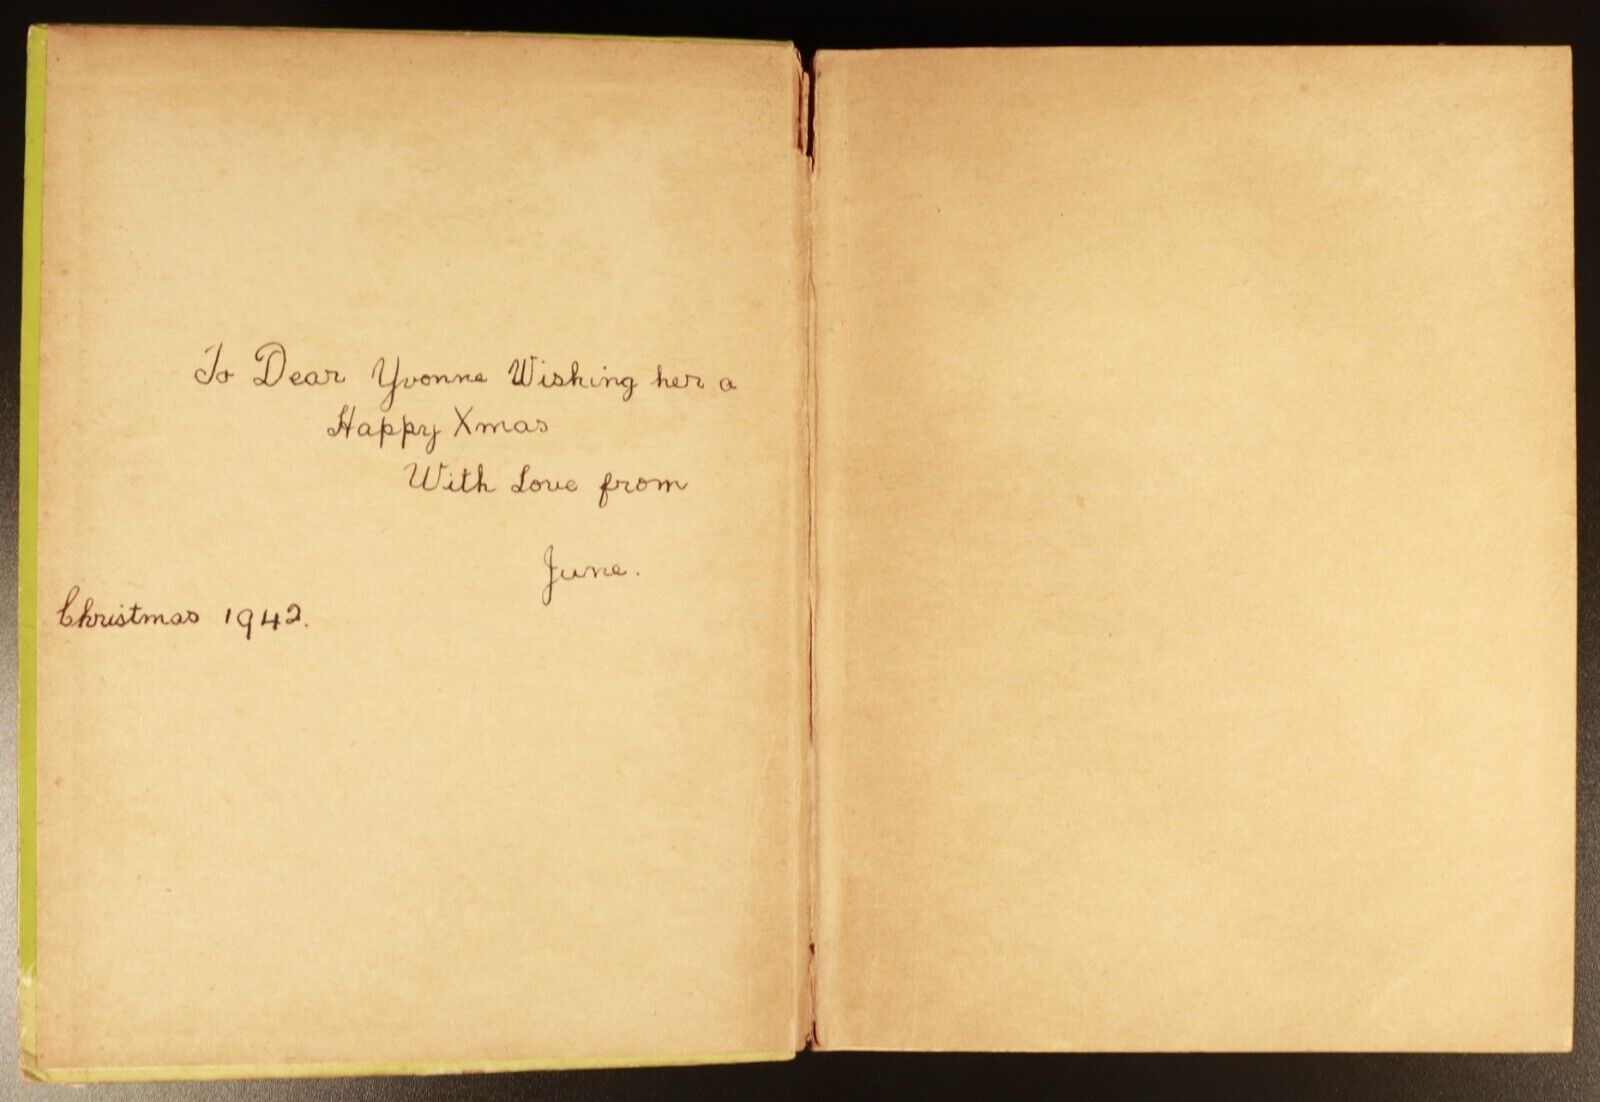 To Dear Yvonne Wishing her a
Happy Xmas
With Love from
June.
Christmas 1942.